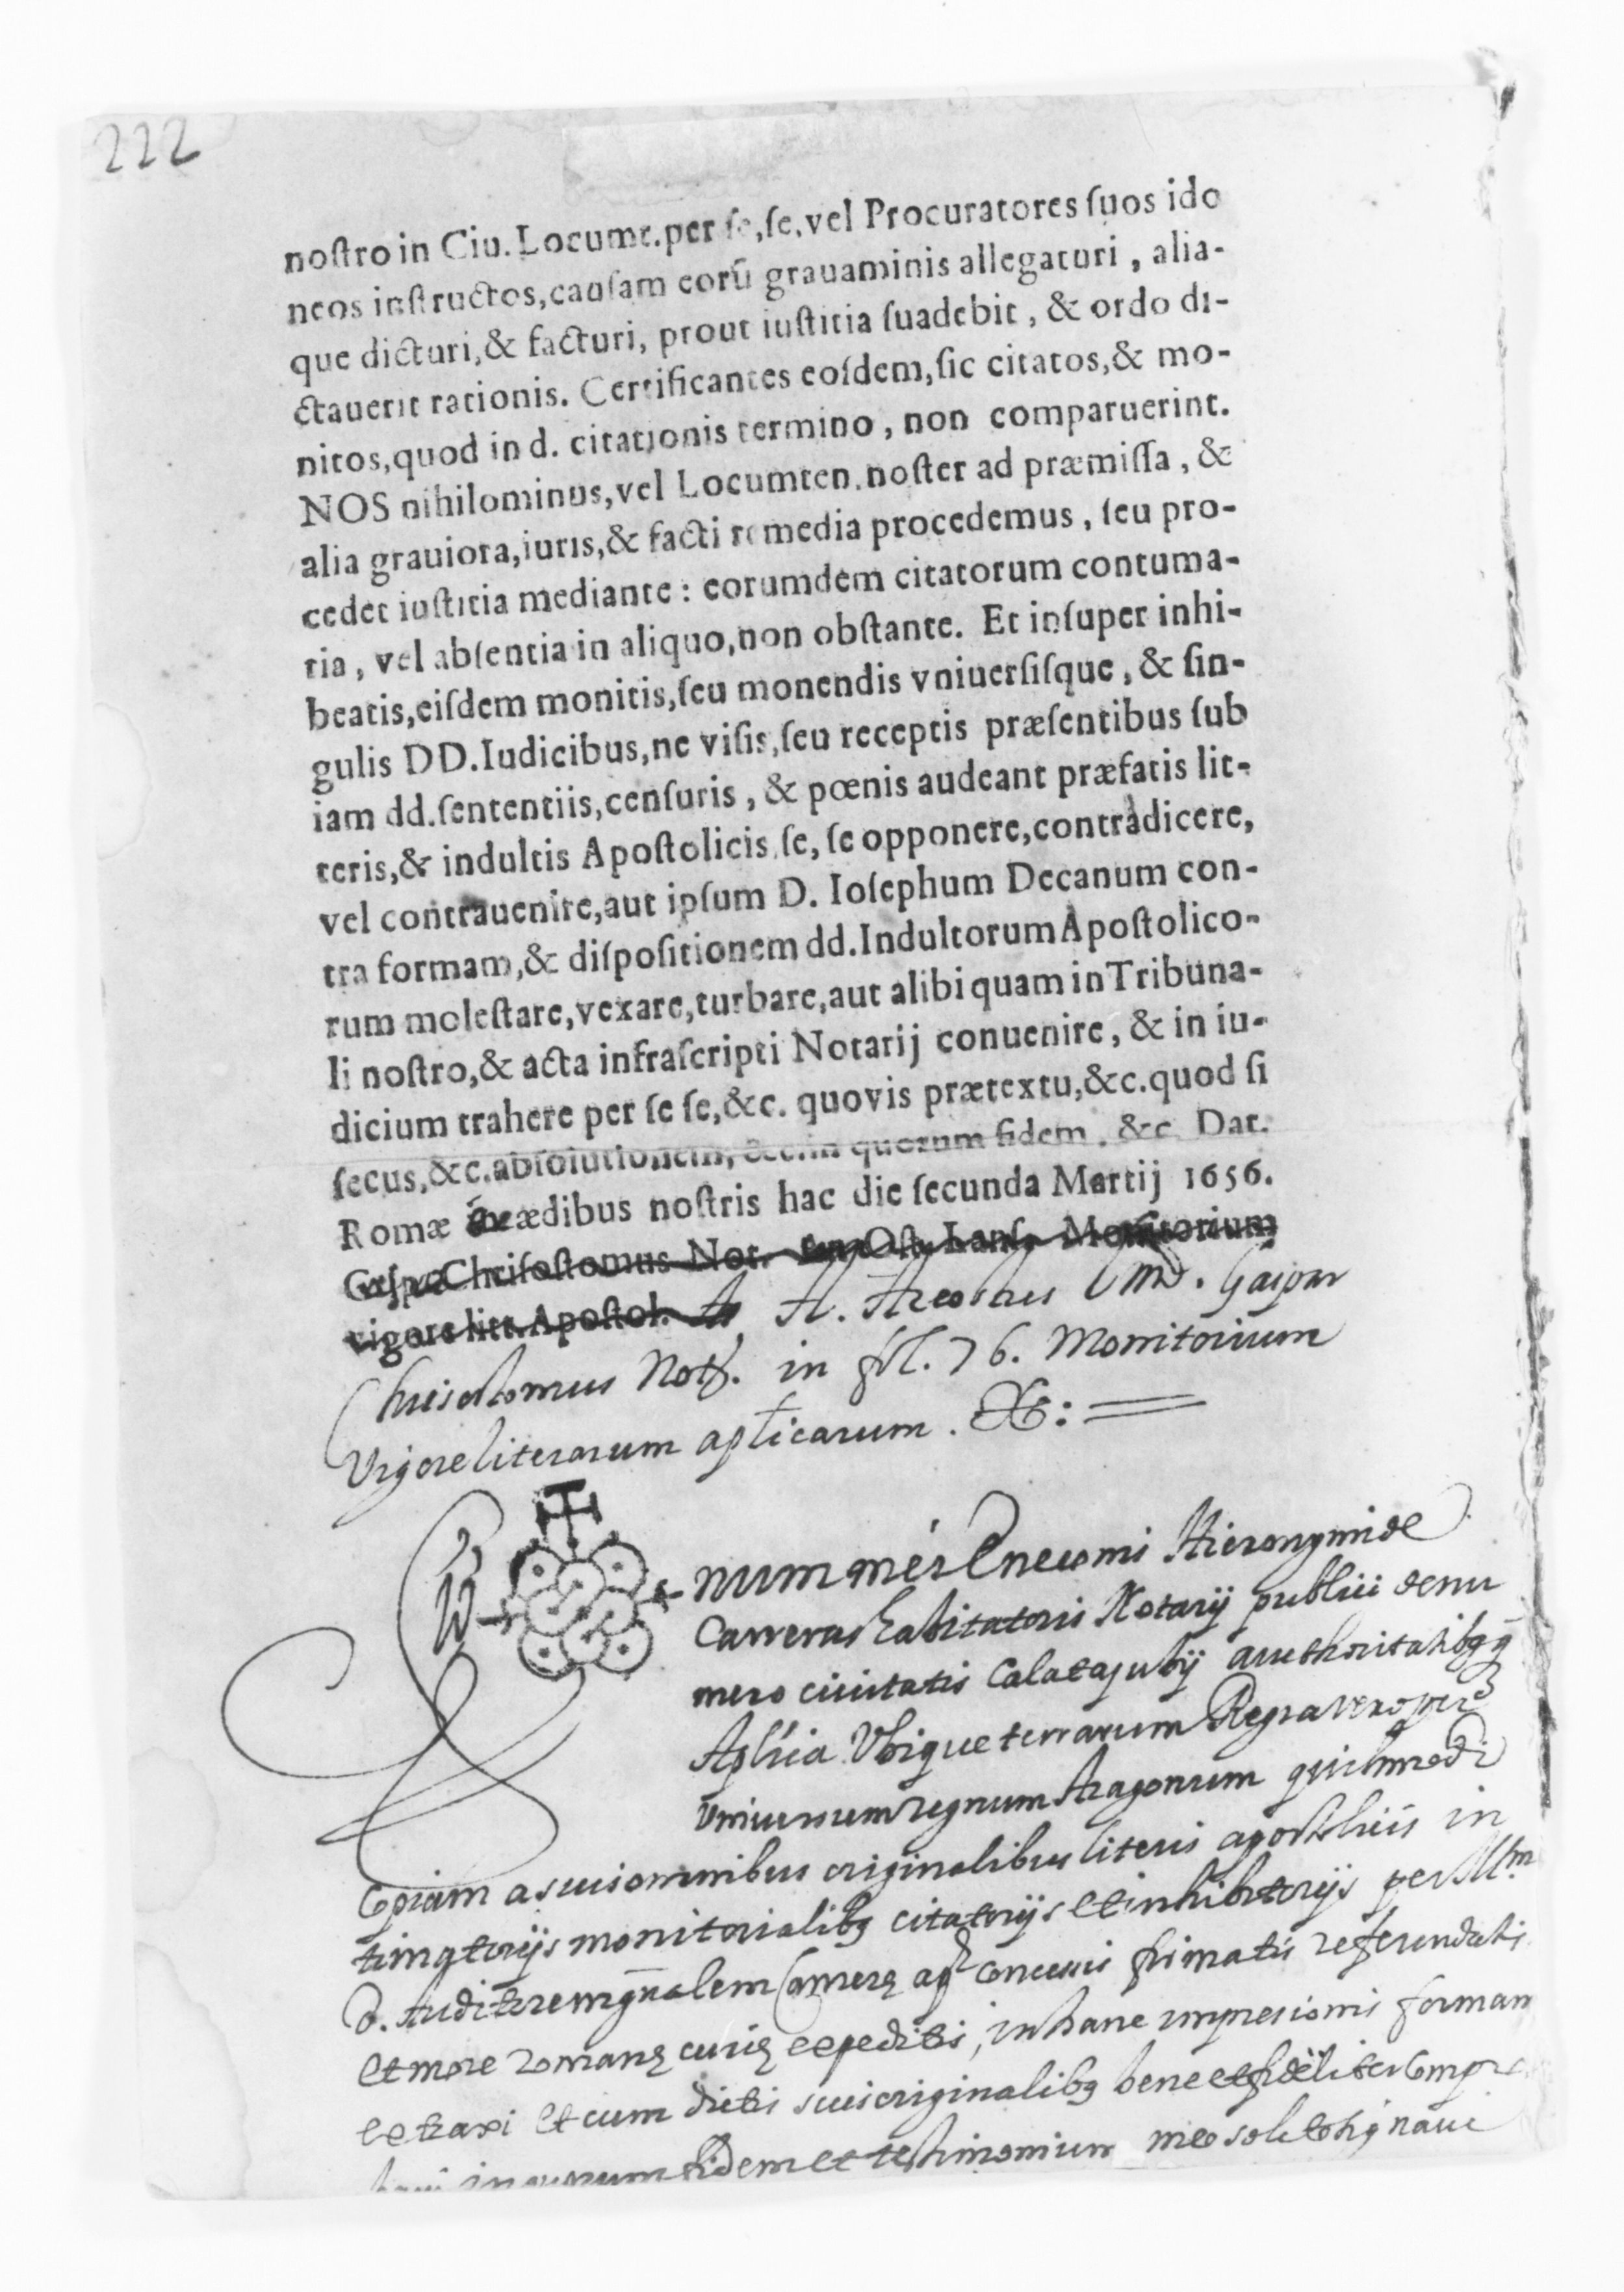 222
noſtro in Ciu. Locumt. per ſe, ſe, vel Procuratores ſuos ido
neos inſtructos, cauſam eorū grauaminis allegaturi, alia-
que dicturi, & facturi, prout iuſtitia ſuadebit, & ordo di-
ctauerit rationis. Certificantes eoſdem, ſic citatos, & mo-
nitos, quod in d. citationis termino, non comparuerint.
NOS nihilominus, vel Locumten. noſter ad præmiſſa, &
alia grauiora, iuris, & facti remedia procedemus, ſeu pro-
cedet iuſtitia mediante: eorumdem citatorum contuma-
tia, vel abſentia in aliquo, non obſtante. Et inſuper inhi-
beatis, eiſdem monitis, ſeu monendis vniuerſiſque, & ſin-
gulis DD. Iudicibus, ne viſis, ſeu receptis præſentibus ſub
iam dd. ſententiis, cenſuris, & pœnis audeant præfatis lit-
teris, & indultis Apoſtolicis ſe, ſe opponere, contradicere,
vel contrauenire, aut ipſum D. Ioſephum Decanum con-
tra formam, & diſpoſitionem dd. Indultorum Apoſtolico-
rum moleſtare, vexare, turbare, aut alibi quam in Tribuna-
li noſtro, & acta infraſcripti Notarij conuenire, & in iu-
dicium trahere per ſe ſe, &c. quovis prætextu, &c. quod ſi
ſecus, &c. abſolutionem, &c. in quorum fidem, &c. Dat.
Romæ ædibus noſtris hac die ſecunda Martij 1656.
Chriſoſtomus Not. Monitorium
vigore litt. Apoſtol. A. Gaspar
Chrisostomus Not. in fol. 76. Monitorium
Vigore literarum apticarum.
num mei Hieronymi de
Carreras habitatoris Notarij publici de nu
mero ciuitatis Calatajubij authoritatibq q
Aplica Vbique terrarum Regia vero per
Vniuersum regnum Aragonum qui hmodi
Copiam a suis originalibus literis apostolicis in
monitorialibq citatorijs et inhibitorijs per Illm
D. Auditorem gnalem Camerę ap concessis firmatis referendatis
et more romanę curię expeditis, in hanc impresionis formam
extraxi et cum dictis suis originalibq bene et fideliter
in quorum fidem et testimonium meo solito signaui